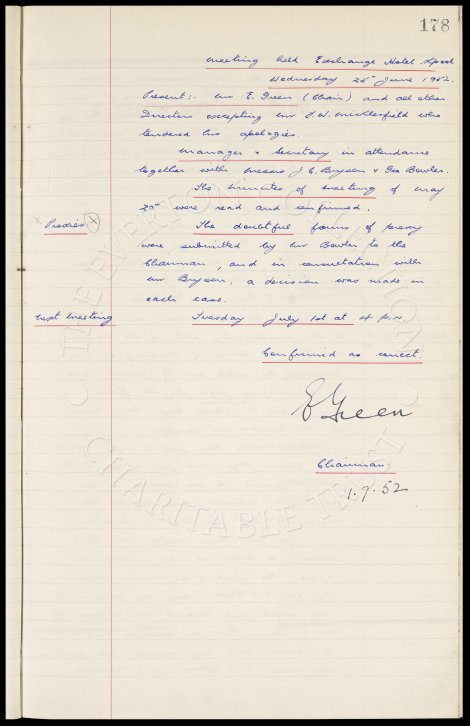 178
Meeting held Exchange Hotel. L'pool
Wednesday 25th June 1952.
Present:- Mr E. Green (Chair) and all other
Directors excepting Mr J. W. Micklesfield who
tendered his apologies.
Manager & Secretary in attendance
together with Messrs J. C. Bryson & Geo Bowler.
The Minutes of Meeting of May
20th were read and confirmed.
x Proxies x The doubtful forms of proxy
were submitted by Mr Bowler to the
Chairman, and in consultation with
Mr Bryson, a decision was made in
each case.
Next Meeting Tuesday July 1st at 4 p.m.
Confirmed as correct.
E Green
Chairman.
1.7.52
THE EVERTON COLLECTION
CHARITABLE TRUST